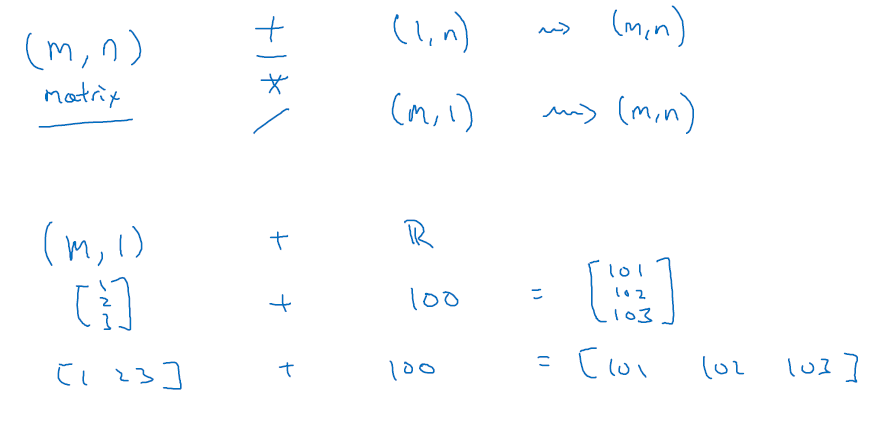 (m, n) + (1, n) ⇝ (m, n)
matrix -
*
/ (m, 1) ⇝ (m, n)
(m, 1) + ℝ
[1 2 3] + 100 = [101 102 103]
[1 2 3] + 100 = [101 102 103]